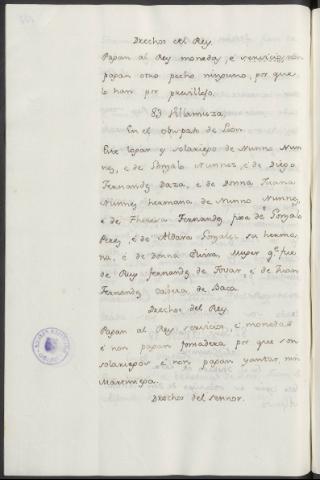 Drechos del Rey.
Pagan al Rey moneda, e servicios, non
pagan otro pecho ninguno, por que
lo han por previllejo.
83 Villamuza,
En el obispado de Leon
Este logar es solariego de Nunno Nun
nez, e de Gonzalo Nunnez, e de Diego
Fernandez Daza, e de Donna Juana
Nunnez hermana de Nunno Nunnez,
e de Theresa Fernandez, fija de Gonzalo
Perez, e de Aldara Gonzalez su herma
na, e de donna Quirsa, muger que fue
de Ruy fernandez de Tovar, e de Juan
Fernandez de Baca.
Drechos del Rey.
Pagan al Rey servicios, e monedas
e non pagan fonsadera por que son
solariegos e non pagan yantar nin
Martiniega.
Drechos del sennor.